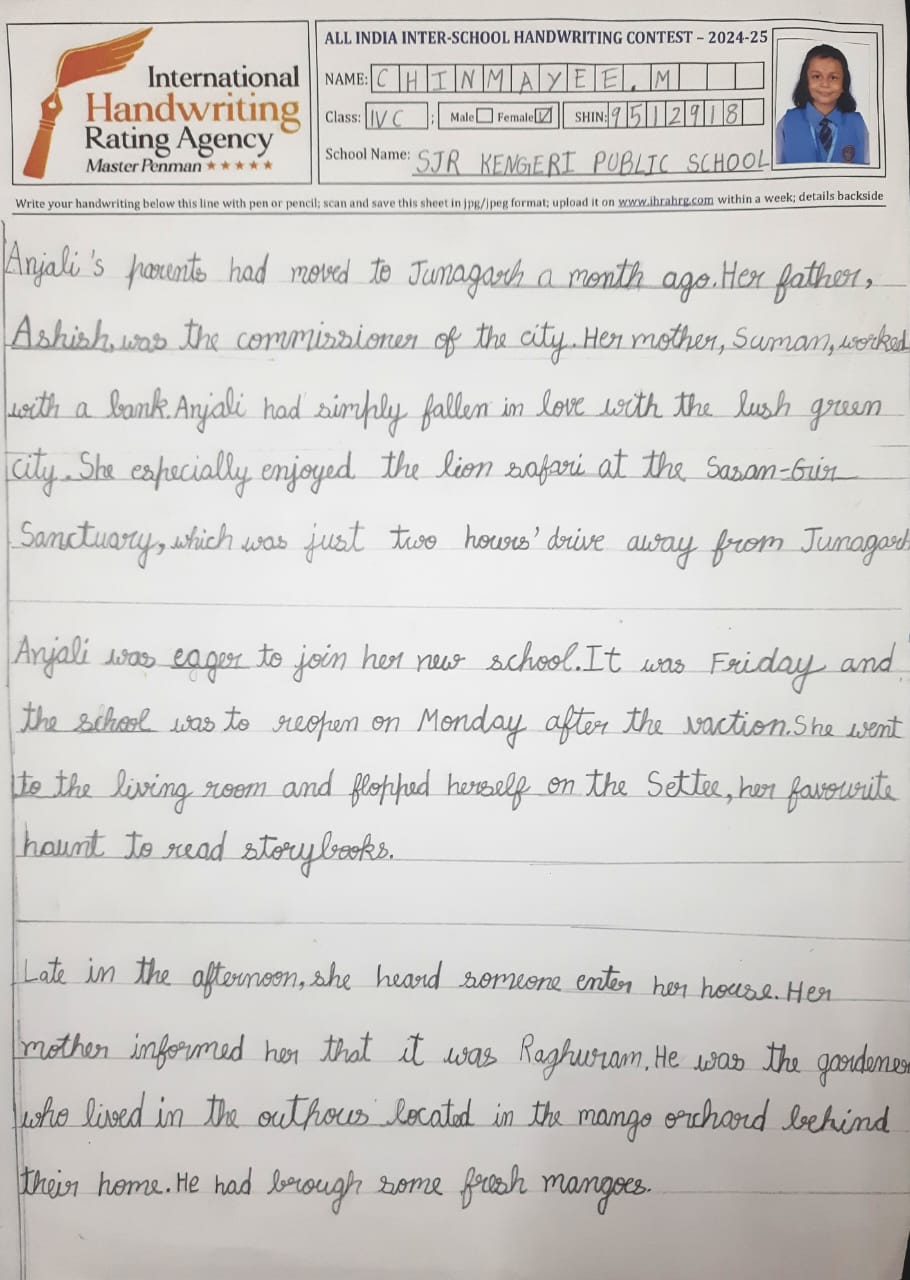 International
Handwriting
Rating Agency
Master Penman ★★★★★
ALL INDIA INTER-SCHOOL HANDWRITING CONTEST – 2024-25
NAME: CHINMAYEE.M
Class: IV C ; Male Female ☑ SHIN: 9512918
School Name: SJR KENGERI PUBLIC SCHOOL
Write your handwriting below this line with pen or pencil; scan and save this sheet in jpg/jpeg format; upload it on www.ihrahrg.com within a week; details backside
Anjali's parents had moved to Junagarh a month ago. Her father,
Ashish, was the commissioner of the city. Her mother, Suman, worked
with a bank. Anjali had simply fallen in love with the lush green
city. She especially enjoyed the lion safari at the Sasan-Gir
Sanctuary, which was just two hours' drive away from Junagarh
Anjali was eager to join her new school. It was Friday and
the school was to reopen on Monday after the vaction. She went
to the living room and flopped herself on the Settee, her favourite
haunt to read storybooks.
Late in the afternoon, she heard someone enter her house. Her
mother informed her that it was Raghuram. He was the gardener
who lived in the outhous located in the mango orchard behind
their home. He had brough some fresh mangoes.